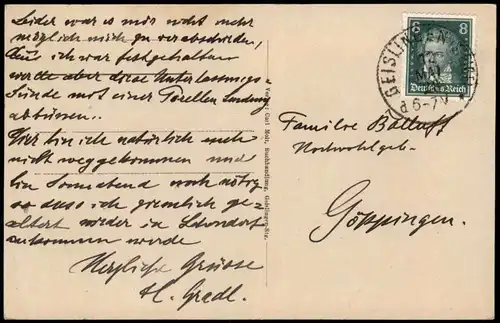 Leider war es mir nicht mehr
möglich mich zu verabschieden,
da ich war festgehalten
werde aber diese Unterlassungs-
Sünde mit einer Forellen Sendung
abbüssen.
Hier bin ich natürlich auch
nicht weggekommen und
bin Sonnabend noch nötig
so dass ich ziemlich ge-
altert wieder in
ankommen werde
Herzliche Grüsse
H. Gredl.
Verlag: Carl Maier, Buchhandlung, Geislingen-Stg.
8 8
Deutsches Reich
GEISLINGEN
MAI
6-7 V
Familie Balluff
Hochwohlgeb.
Göppingen.